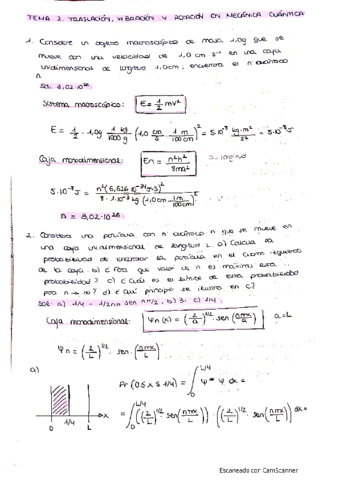 TEMA 2. TRASLACIÓN, VIBRACIÓN Y ROTACIÓN EN MECÁNICA CUÁNTICA
1. Considere un objeto macroscópico de masa 1,0g que se
mueve con una velocidad de 1,0 cm s⁻¹ en una caja
unidimensional de longitud 1,0cm; encuentra el nº cuántico
n.
Sol: 3,02·10²⁶
Sistema macroscópico: E = 1/2 mv²
E = 1/2 · 1,0g · 1 kg/1000 g (1,0 cm/s · 1 m/100 cm)² = 5·10⁻⁸ kg·m²/s² = 5·10⁻⁸ J
Caja monodimensional: En = n²h²/8ma² a = longitud
5·10⁻⁸ J = n²(6,626·10⁻³⁴ J·s)²/8·1·10⁻³ kg (1,0cm · 1m/100cm)²
n = 3,02·10²⁶
2. Considera una partícula con nº cuántico n que se mueve en
una caja unidimensional de longitud L. a) Calcula la
probabilidad de encontrar la partícula en el cuarto izquierdo
de la caja. b) ¿Para que valor de n es máxima esta
probabilidad? c) ¿Cuál es el límite de esta probabilidad
para n → ∞? d) ¿Qué principio se ilustra en c)?
Sol: a) 1/4 - 1/2πn sen nπ/2, b) 3. c) 1/4
Caja monodimensional: Ψn (x) = (2/a)^1/2 · sen (nπx/a) a = L
Ψn = (2/L)^1/2 · sen (nπx/L)
a)
Pr (0 ≤ x ≤ 1/4) = ∫₀^L/4 Ψ* Ψ dx =
= ∫₀^L/4 ((2/L)^1/2 · sen (nπx/L)) · ((2/L)^1/2 · sen (nπx/L)) dx =
0 1/4 L x
Escaneado con CamScanner